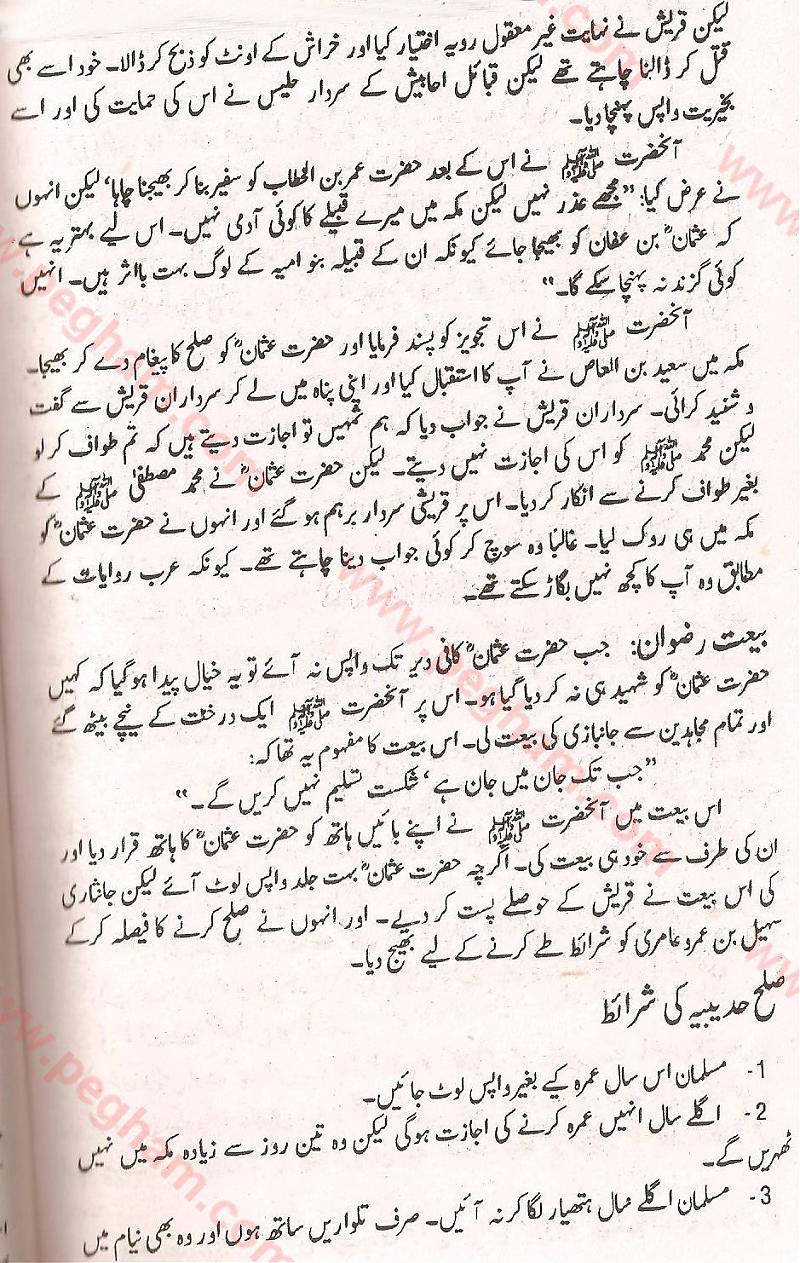 لیکن قریش نے نہایت غیر معقول رویہ اختیار کیا اور خراش کے اونٹ کو ذبح کر ڈالا۔ خود اسے بھی
قتل کر ڈالنا چاہتے تھے لیکن قبائل احابیش کے سردار حلیس نے اس کی حمایت کی اور اسے
بخیریت واپس پہنچا دیا۔
آنحضرت ﷺ نے اس کے بعد حضرت عمر بن الخطاب کو سفیر بنا کر بھیجنا چاہا، لیکن انہوں
نے عرض کیا: "مجھے عذر نہیں لیکن مکہ میں میرے قبیلے کا کوئی آدمی نہیں۔ اس لیے بہتر یہ ہے
کہ عثمانؓ بن عفان کو بھیجا جائے کیونکہ ان کے قبیلہ بنو امیہ کے لوگ بہت بااثر ہیں۔ انہیں
کوئی گزند نہ پہنچا سکے گا۔"
آنحضرت ﷺ نے اس تجویز کو پسند فرمایا اور حضرت عثمانؓ کو صلح کا پیغام دے کر بھیجا۔
مکہ میں سعید بن العاص نے آپ کا استقبال کیا اور اپنی پناہ میں لے کر سرداران قریش سے گفت
و شنید کرائی۔ سرداران قریش نے جواب دیا کہ ہم تمہیں تو اجازت دیتے ہیں کہ تم طواف کر لو
لیکن محمد ﷺ کو اس کی اجازت نہیں دیتے۔ لیکن حضرت عثمانؓ نے محمد مصطفی ﷺ کے
بغیر طواف کرنے سے انکار کر دیا۔ اس پر قریشی سردار برہم ہو گئے اور انہوں نے حضرت عثمانؓ کو
مکہ میں ہی روک لیا۔ غالباً وہ سوچ کر کوئی جواب دینا چاہتے تھے۔ کیونکہ عرب روایات کے
مطابق وہ آپ کا کچھ نہیں بگاڑ سکتے تھے۔
بیعت رضوان: جب حضرت عثمانؓ کافی دیر تک واپس نہ آئے تو یہ خیال پیدا ہو گیا کہ کہیں
حضرت عثمانؓ کو شہید ہی نہ کر دیا گیا ہو۔ اس پر آنحضرت ﷺ ایک درخت کے نیچے بیٹھ گئے
اور تمام مجاہدین سے جانبازی کی بیعت لی۔ اس بیعت کا مفہوم یہ تھا کہ:
"جب تک جان میں جان ہے، شکست تسلیم نہیں کریں گے۔"
اس بیعت میں آنحضرت ﷺ نے اپنے بائیں ہاتھ کو حضرت عثمانؓ کا ہاتھ قرار دیا اور
ان کی طرف سے خود ہی بیعت کی۔ اگرچہ حضرت عثمانؓ بہت جلد واپس لوٹ آئے لیکن جانثاری
کی اس بیعت نے قریش کے حوصلے پست کر دیے۔ اور انہوں نے صلح کرنے کا فیصلہ کر کے
سہیل بن عمرو عامری کو شرائط طے کرنے کے لیے بھیج دیا۔
صلح حدیبیہ کی شرائط
1- مسلمان اس سال عمرہ کیے بغیر واپس لوٹ جائیں۔
2- اگلے سال انہیں عمرہ کرنے کی اجازت ہوگی لیکن وہ تین روز سے زیادہ مکہ میں نہیں
ٹھہریں گے۔
3- مسلمان اگلے سال ہتھیار لگا کر نہ آئیں۔ صرف تلواریں ساتھ ہوں اور وہ بھی نیام میں
www.pegham.com